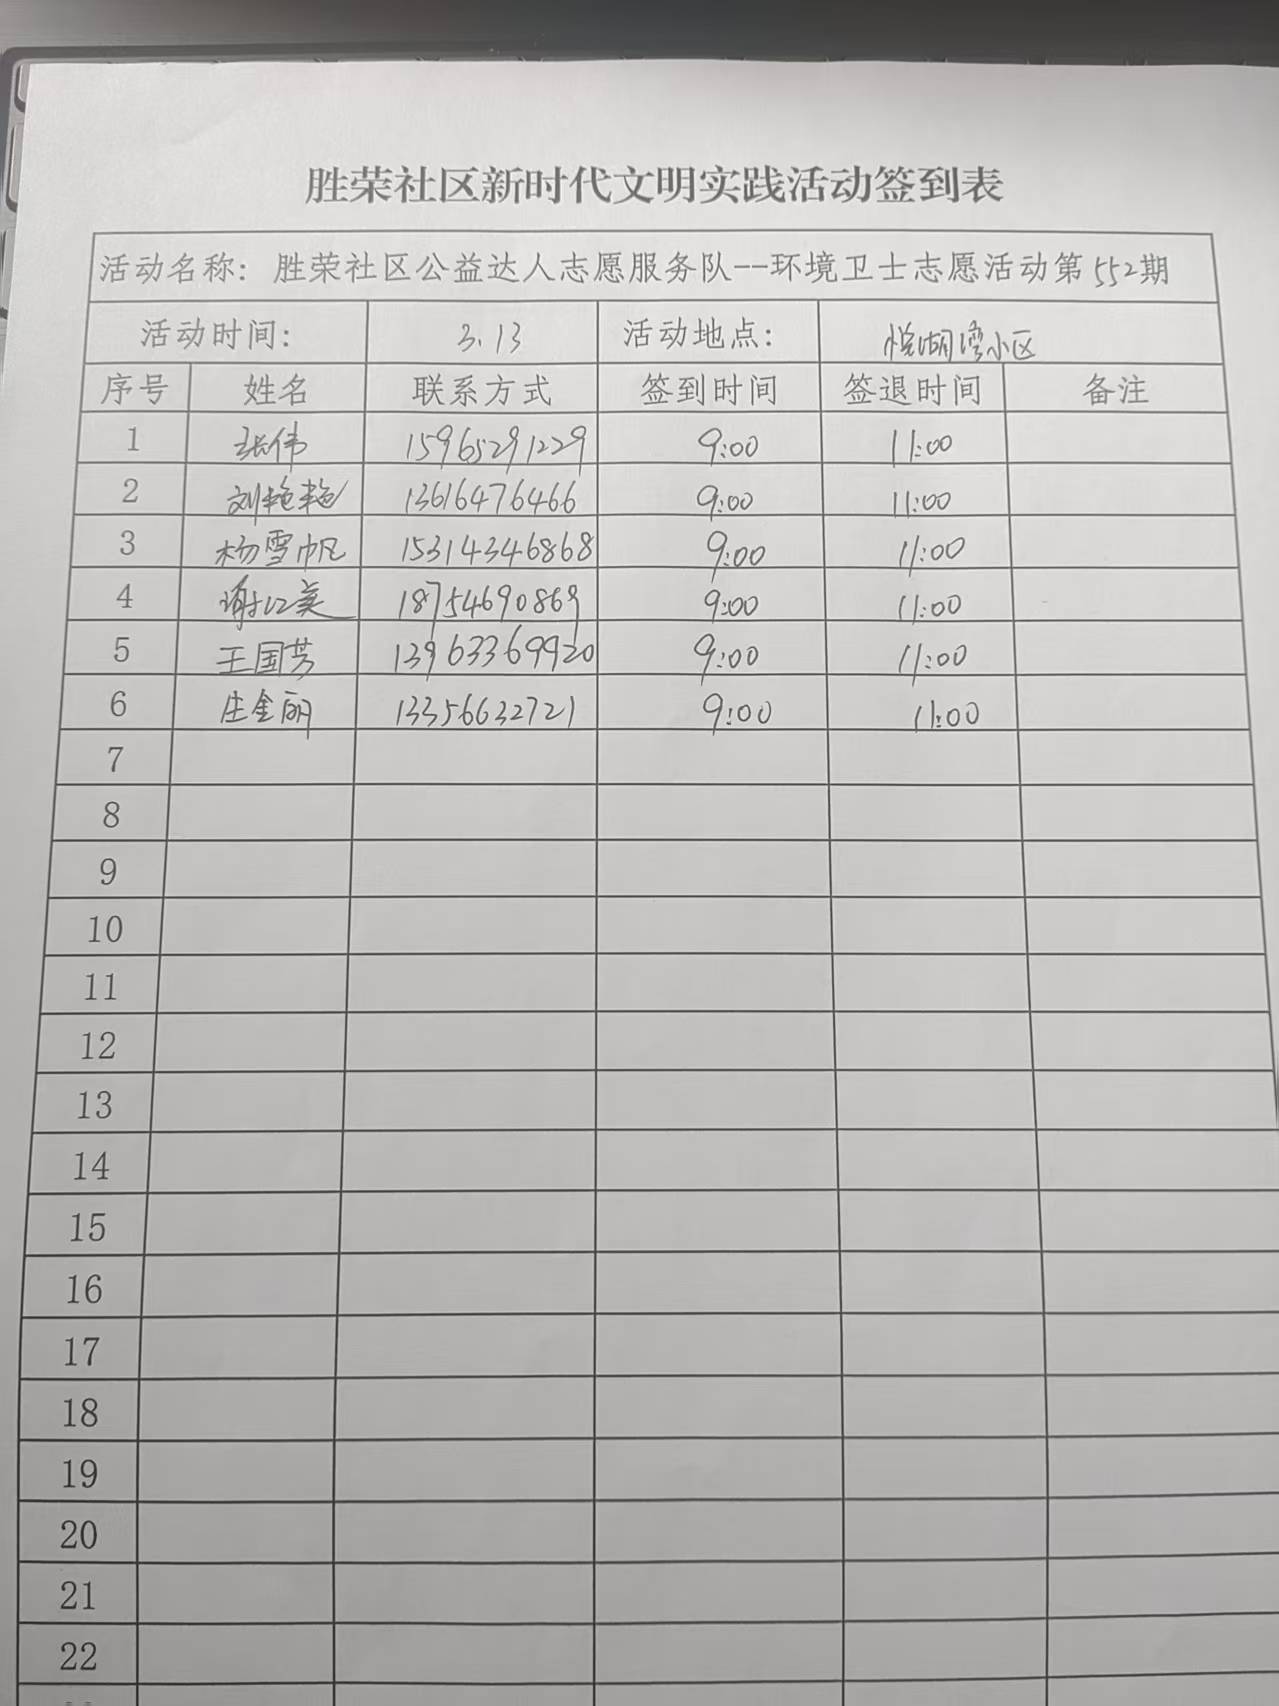 胜荣社区新时代文明实践活动签到表
活动名称：胜荣社区公益达人志愿服务队--环境卫士志愿活动第552期
活动时间： 3.13 活动地点： 悦湖湾小区
序号 姓名 联系方式 签到时间 签退时间 备注
1 张伟 15965291229 9:00 11:00
2 刘艳艳 13616476466 9:00 11:00
3 杨雪帆 15314346868 9:00 11:00
4 谢红英 18754690869 9:00 11:00
5 王国芳 13963369920 9:00 11:00
6 庄金丽 13356632721 9:00 11:00
7
8
9
10
11
12
13
14
15
16
17
18
19
20
21
22